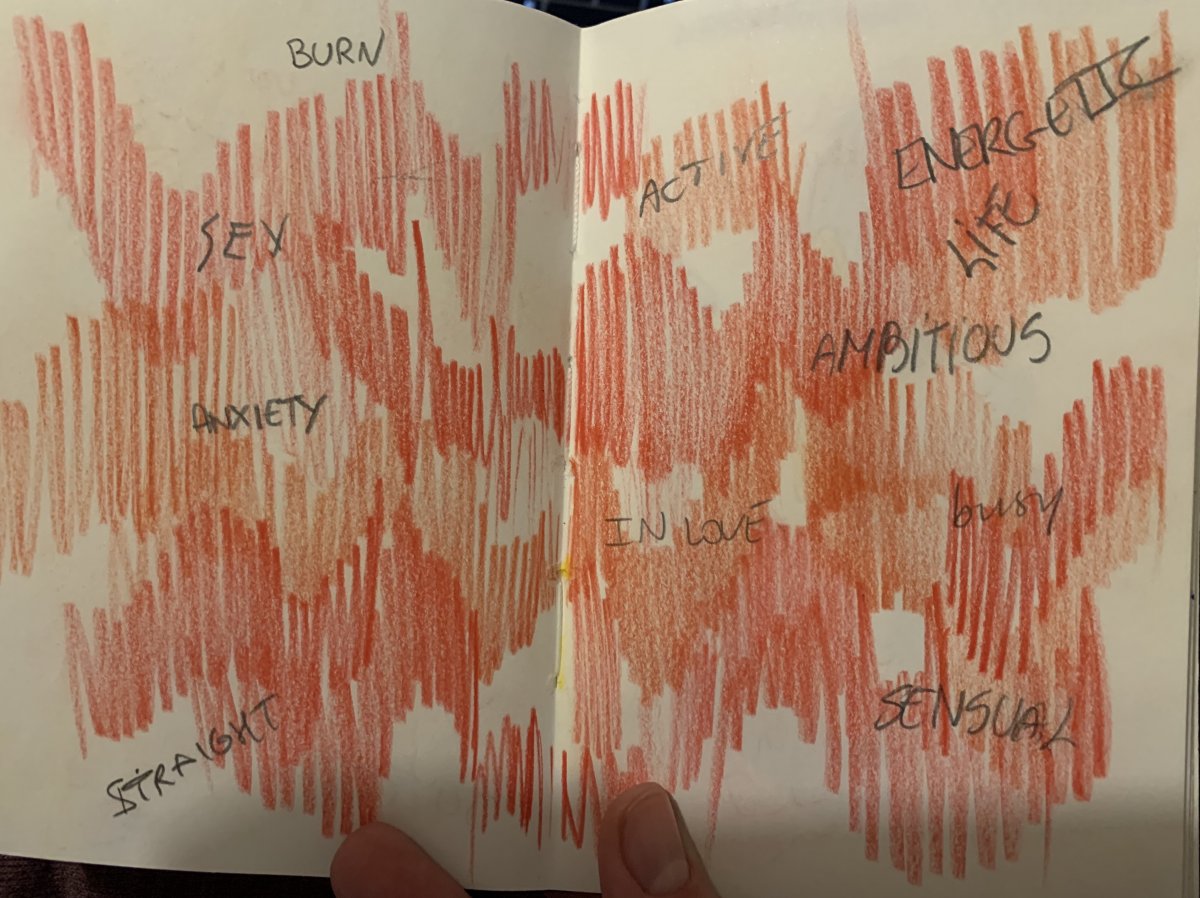 BURN
SEX
ANXIETY
STRAIGHT
ACTIVE
ENERGETIC
LIFE
AMBITIOUS
IN LOVE
busy
SENSUAL